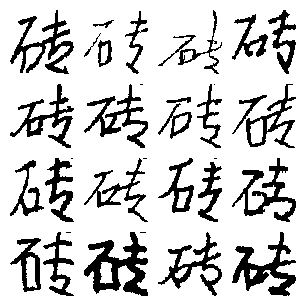 砖砖砖砖
砖砖砖砖
砖砖砖砖
砖砖砖砖